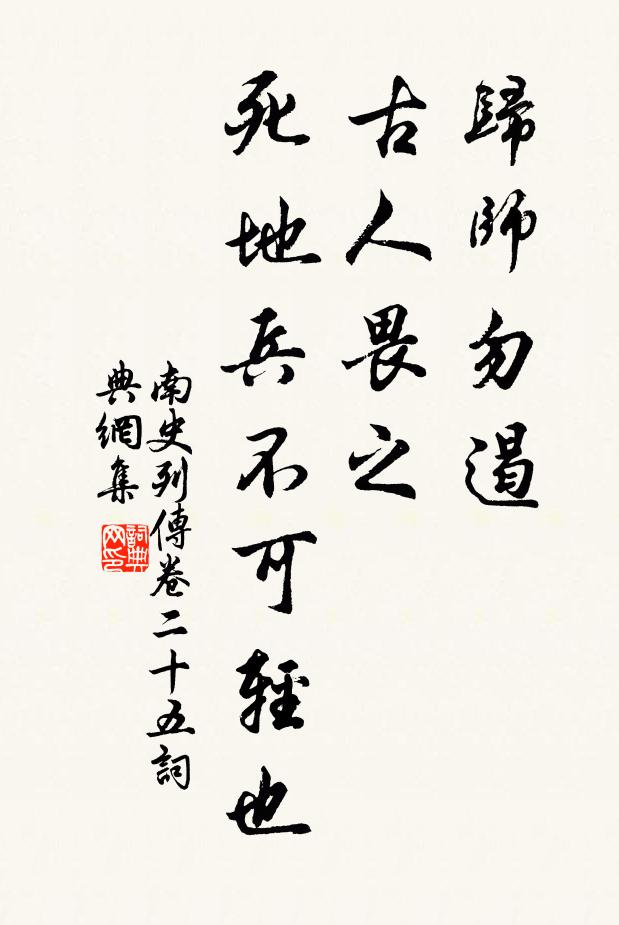 歸師勿遏
古人畏之
死地兵不可輕也
南史列傳卷二十五詞
典網集
詞典
网印